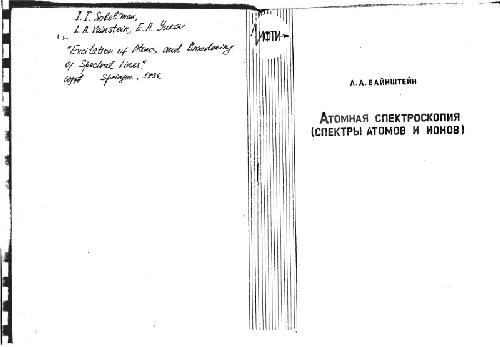 I. I. Sobelman,
L. A. Vainstein, E. A. Yukov
"Excitation of Atoms and Broadening
of Spectral Lines"
Springer, 1981
МФТИ
Л. А. ВАЙНШТЕЙН
АТОМНАЯ СПЕКТРОСКОПИЯ
(СПЕКТРЫ АТОМОВ И ИОНОВ)